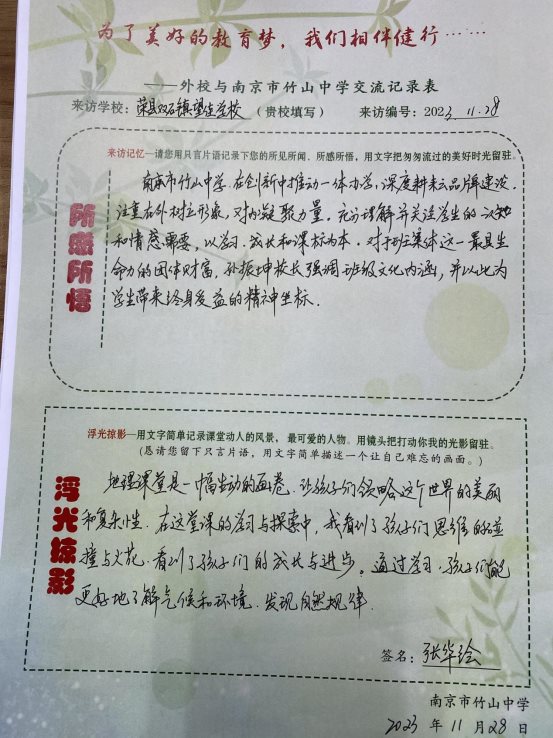 为了美好的教育梦，我们相伴健行……
——外校与南京市竹山中学交流记录表
来访学校：荣县双石镇望佳学校（贵校填写） 来访编号：2023 11.28
来访记忆—请您用只言片语记录下您的所见所闻、所感所悟，用文字把匆匆流过的美好时光留驻。
所感所悟
南京市竹山中学，在创新中推动一体办学，深度耕耘品牌建设。
注重在外树立形象，对内凝聚力量，充分理解并关注学生的认知
和情感需要，以学习、成长和课标为本。对于班集体这一最具生
命力的团体财富，孙振坤校长强调班级文化内涵，并以此为
学生带来终身受益的精神坐标。
浮光掠影—用文字简单记录课堂动人的风景，最可爱的人物。用镜头把打动你我的光影留驻。
（恳请您留下只言片语，用文字简单描述一个让自己难忘的画面。）
浮光掠影
地理课堂是一幅生动的画卷，让孩子们领略这个世界的美丽
和复杂性。在这堂课的学习与探索中，我看到了孩子们思维的碰
撞与火花，看到了孩子们的成长与进步。通过学习，孩子们能
更好地了解气候和环境，发现自然规律。
签名：张华绘
南京市竹山中学
2023 年 11 月 28 日